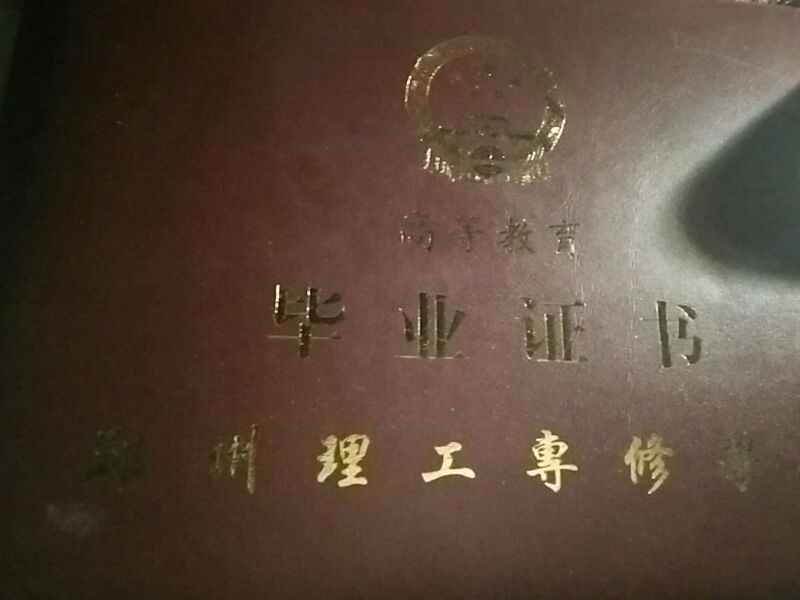 高等教育
毕业证书
州理工專修